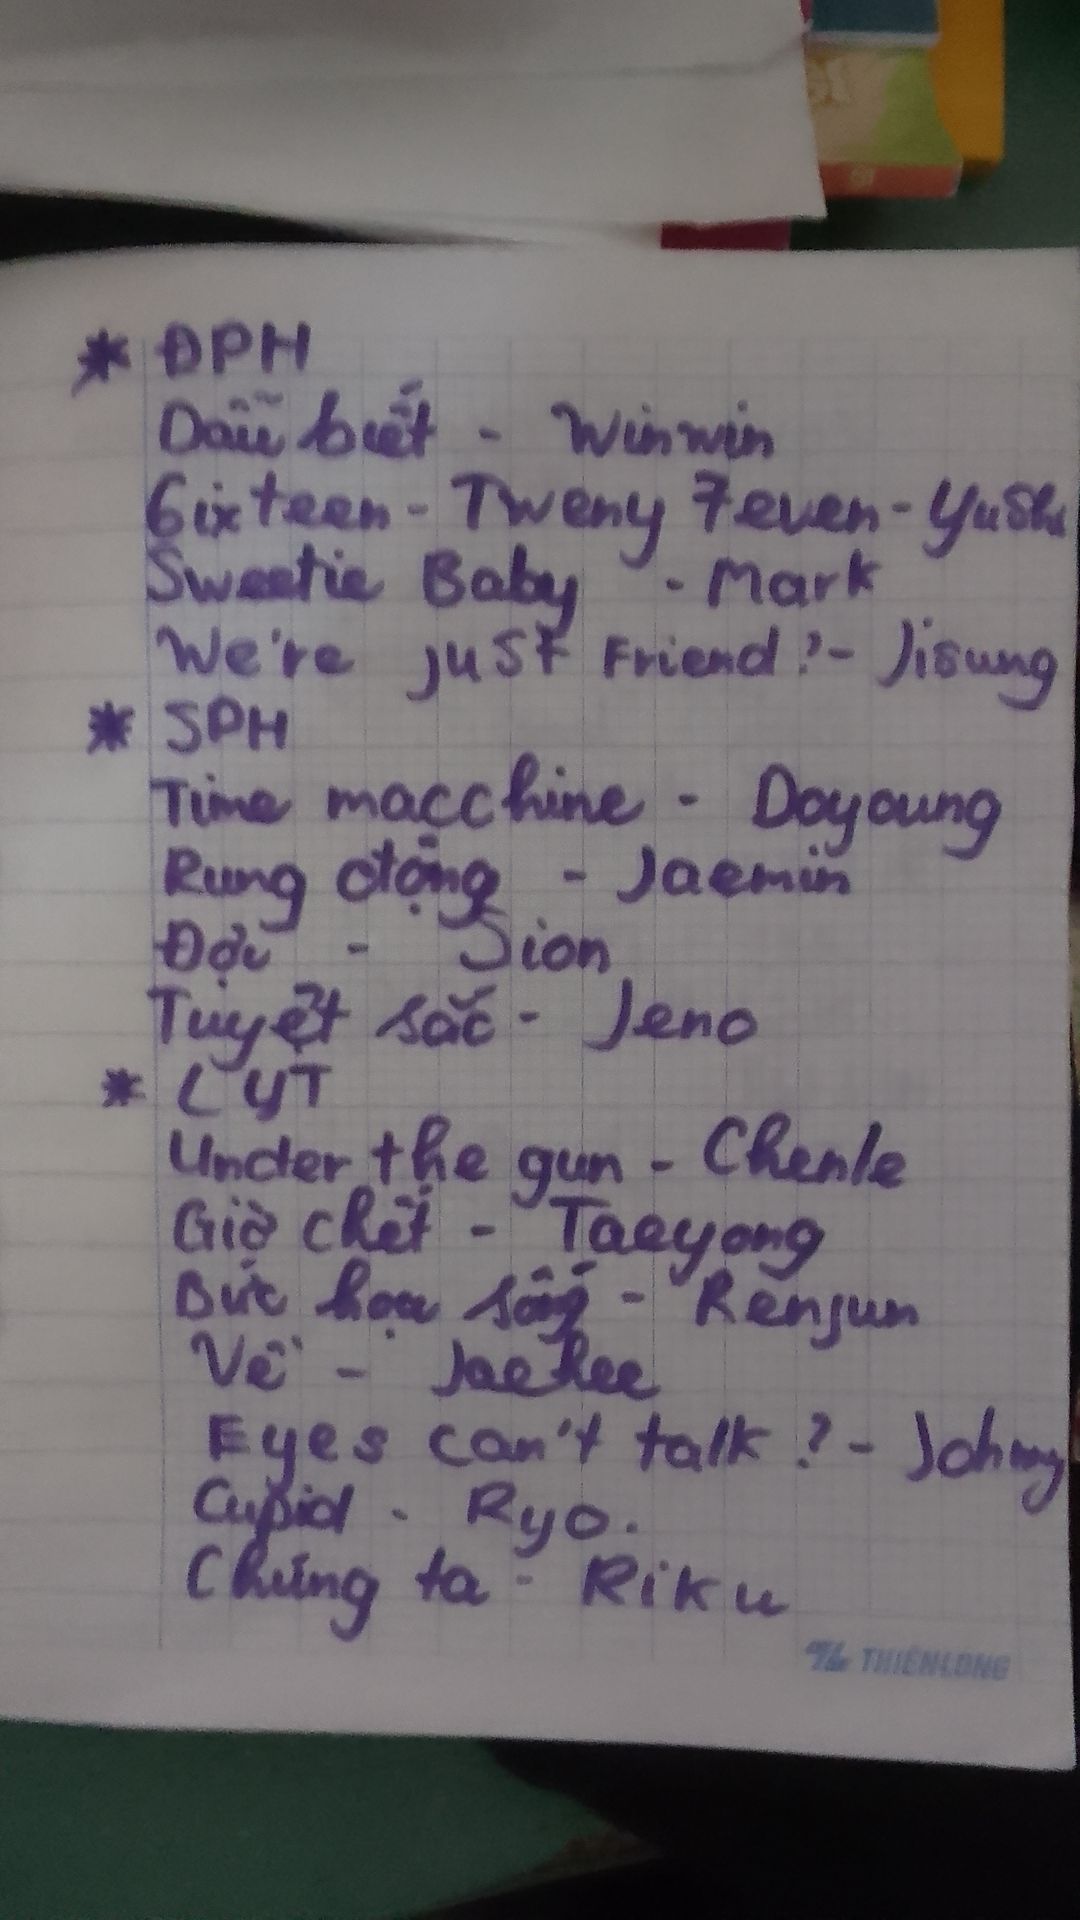 * ĐPH
Dẫu biết - Winwin
6ixteen - Tweny 7even - Yushi
Sweetie Baby - Mark
We're just Friend? - Jisung
* SPH
Time macchine - Doyoung
Rung động - Jaemin
Đợi - Sion
Tuyệt sắc - Jeno
* LYT
Under the gun - Chenle
Giờ chết - Taeyong
Bức họa sống - Renjun
Về - Jaehee
Eyes can't talk? - Johnny
Cupid - Ryo.
Chúng ta - Riku
THIÊN LONG